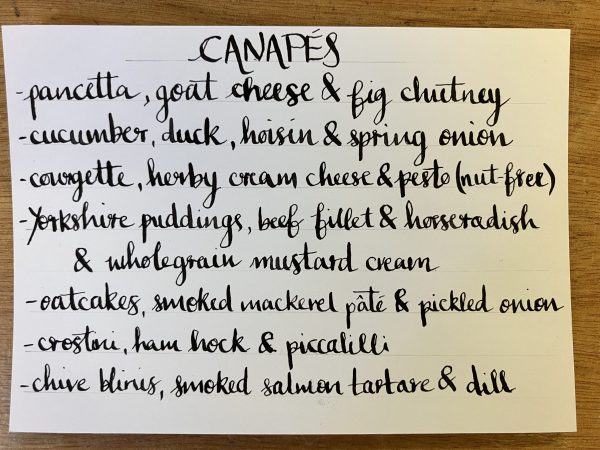 CANAPÉS
- pancetta, goat cheese & fig chutney
- cucumber, duck, hoisin & spring onion
- courgette, herby cream cheese & pesto (nut-free)
- Yorkshire puddings, beef fillet & horseradish
& wholegrain mustard cream
- oatcakes, smoked mackerel pâté & pickled onion
- crostini, ham hock & piccalilli
- chive blinis, smoked salmon tartare & dill